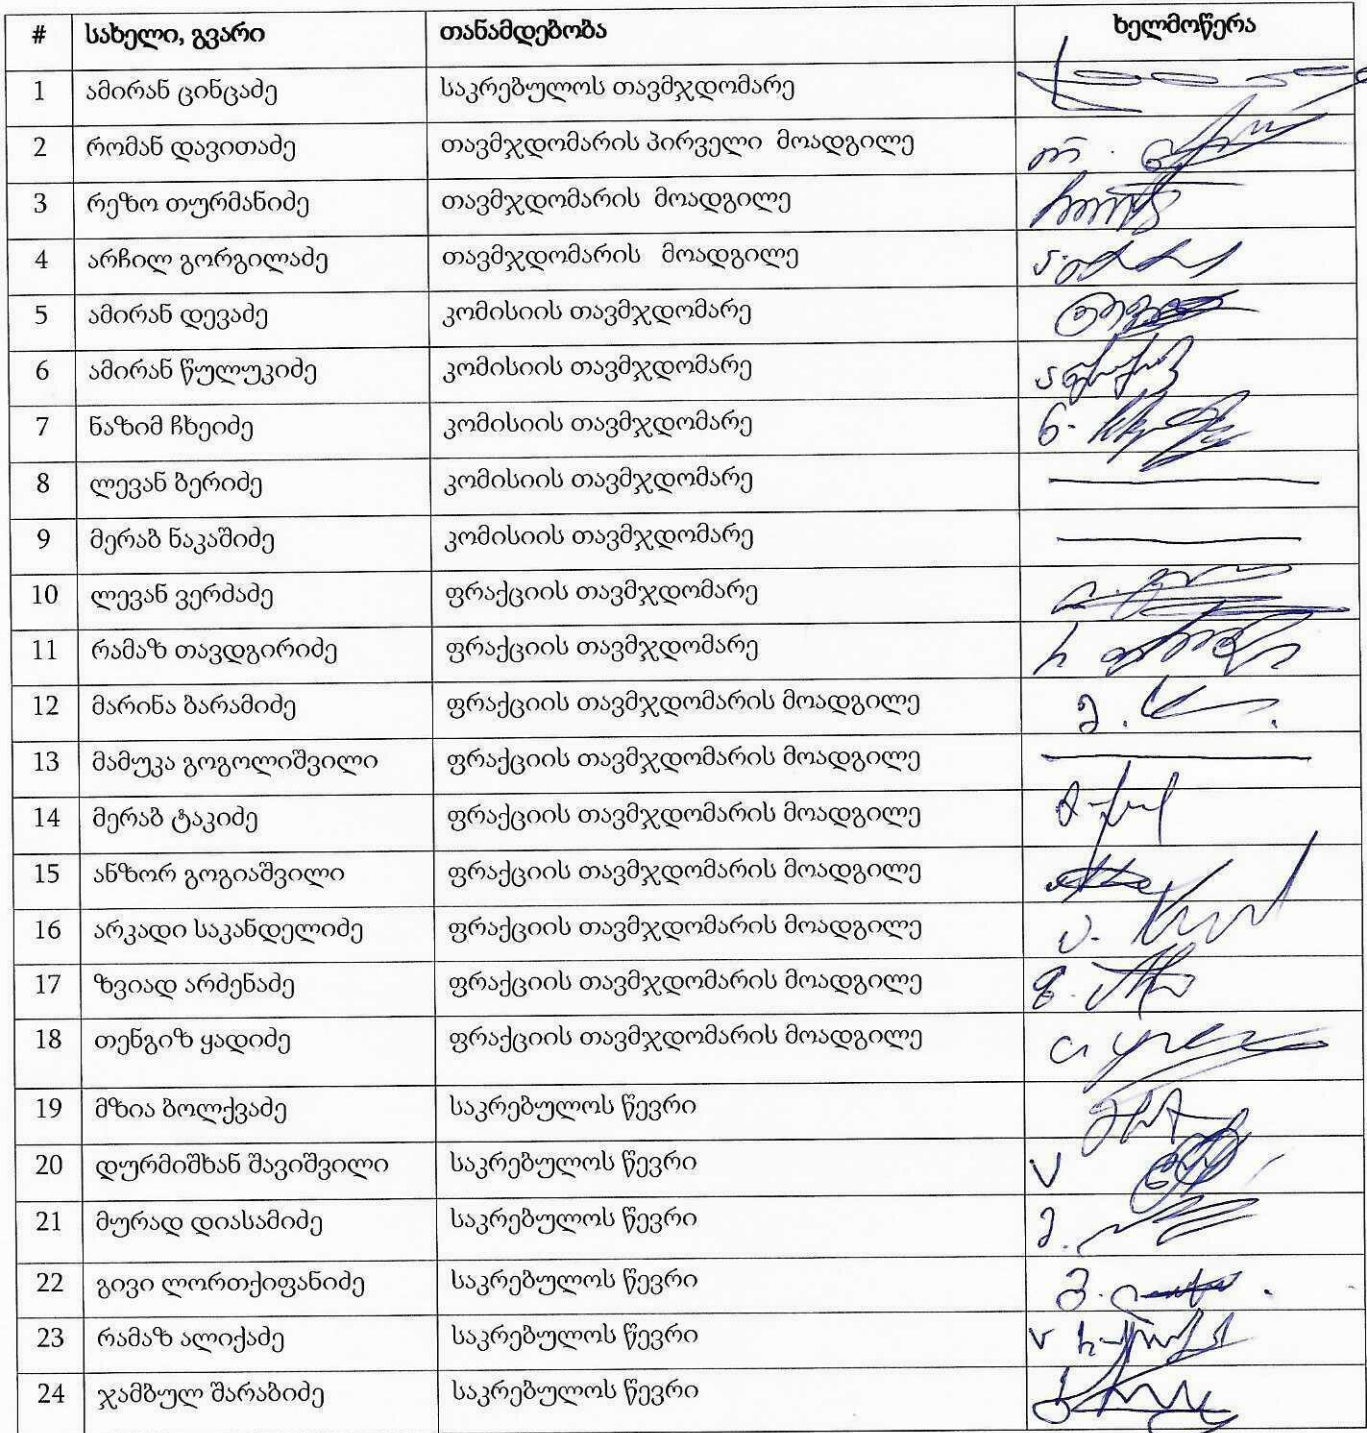 # სახელი, გვარი თანამდებობა ხელმოწერა
1 ამირან ცინცაძე საკრებულოს თავმჯდომარე
2 რომან დავითაძე თავმჯდომარის პირველი მოადგილე
3 რეზო თურმანიძე თავმჯდომარის მოადგილე
4 არჩილ გორგილაძე თავმჯდომარის მოადგილე
5 ამირან დევაძე კომისიის თავმჯდომარე
6 ამირან წულუკიძე კომისიის თავმჯდომარე
7 ნაზიმ ჩხეიძე კომისიის თავმჯდომარე
8 ლევან ბერიძე კომისიის თავმჯდომარე
9 მერაბ ნაკაშიძე კომისიის თავმჯდომარე
10 ლევან ვერძაძე ფრაქციის თავმჯდომარე
11 რამაზ თავდგირიძე ფრაქციის თავმჯდომარე
12 მარინა ბარამიძე ფრაქციის თავმჯდომარის მოადგილე
13 მამუკა გოგოლიშვილი ფრაქციის თავმჯდომარის მოადგილე
14 მერაბ ტაკიძე ფრაქციის თავმჯდომარის მოადგილე
15 ანზორ გოგიაშვილი ფრაქციის თავმჯდომარის მოადგილე
16 არკადი საკანდელიძე ფრაქციის თავმჯდომარის მოადგილე
17 ზვიად არძენაძე ფრაქციის თავმჯდომარის მოადგილე
18 თენგიზ ყადიძე ფრაქციის თავმჯდომარის მოადგილე
19 მზია ბოლქვაძე საკრებულოს წევრი
20 დურმიშხან შავიშვილი საკრებულოს წევრი
21 მურად დიასამიძე საკრებულოს წევრი
22 გივი ლორთქიფანიძე საკრებულოს წევრი
23 რამაზ ალიქაძე საკრებულოს წევრი
24 ჯამბულ შარაბიძე საკრებულოს წევრი